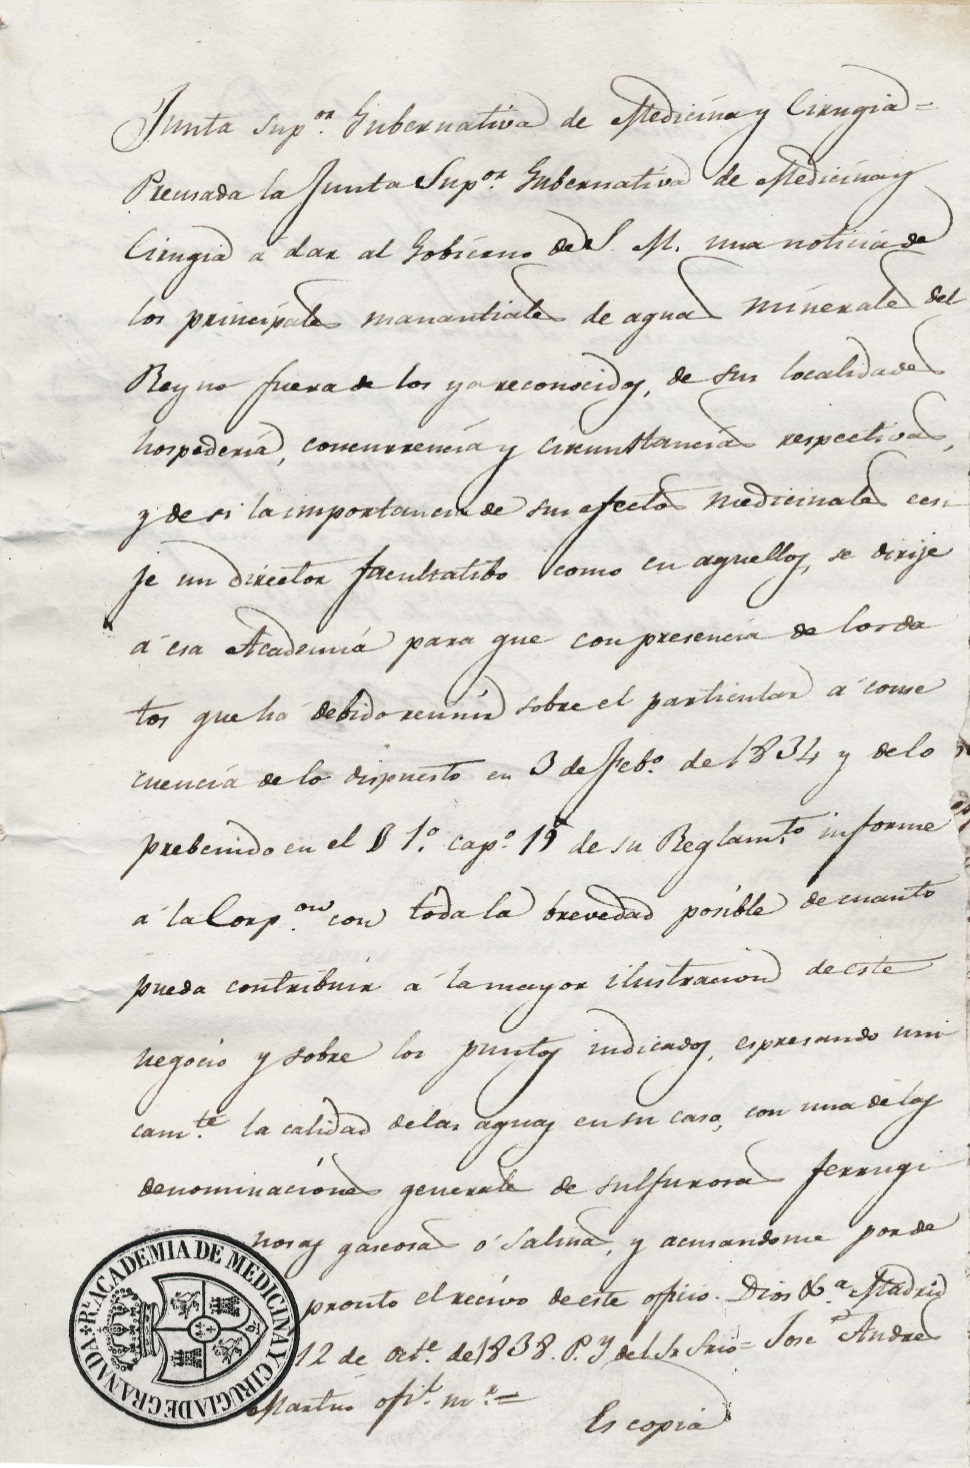 Junta Sup.or Gubernativa de Medicina y Cirugia =
Precisada la Junta Sup.or Gubernativa de Medicina y
Cirugia á dar al Gobierno de S. M. una noticia de
los principales manantiales de aguas minerales del
Reyno fuera de los ya reconocidos, de sus localidades
hospederia, concurrencia y circunstancias respectivas,
y de si la importancia de sus efectos medicinales exi
je un director facultatibo como en aquellos, se dirije
á esa Academia para que con presencia de los da
tos que ha debido reunir sobre el particular á conse
cuencia de lo dispuesto en 3 de Feb.o de 1834 y de lo
prebenido en el § 1.o cap.o 19 de su Reglam.to informe
á la Corp.on con toda la brevedad posible de cuanto
pueda contribuir á la mayor ilustracion de este
negocio y sobre los puntos indicados, espresando uni
cam.te la calidad de las aguas en su caso, con una de las
denominaciones generales de sulfurosas ferrugi
nosas gaseosas ó salinas, y acusandome por de
pronto el recivo de este oficio. Dios &.a Madrid
12 de Oct.e de 1838. P. Y del Sr Srio = Jose Andres
Martin ofi.l m.r =
Es copia
R.L ACADEMIA DE MEDICINA Y CIRUGIA DE GRANADA